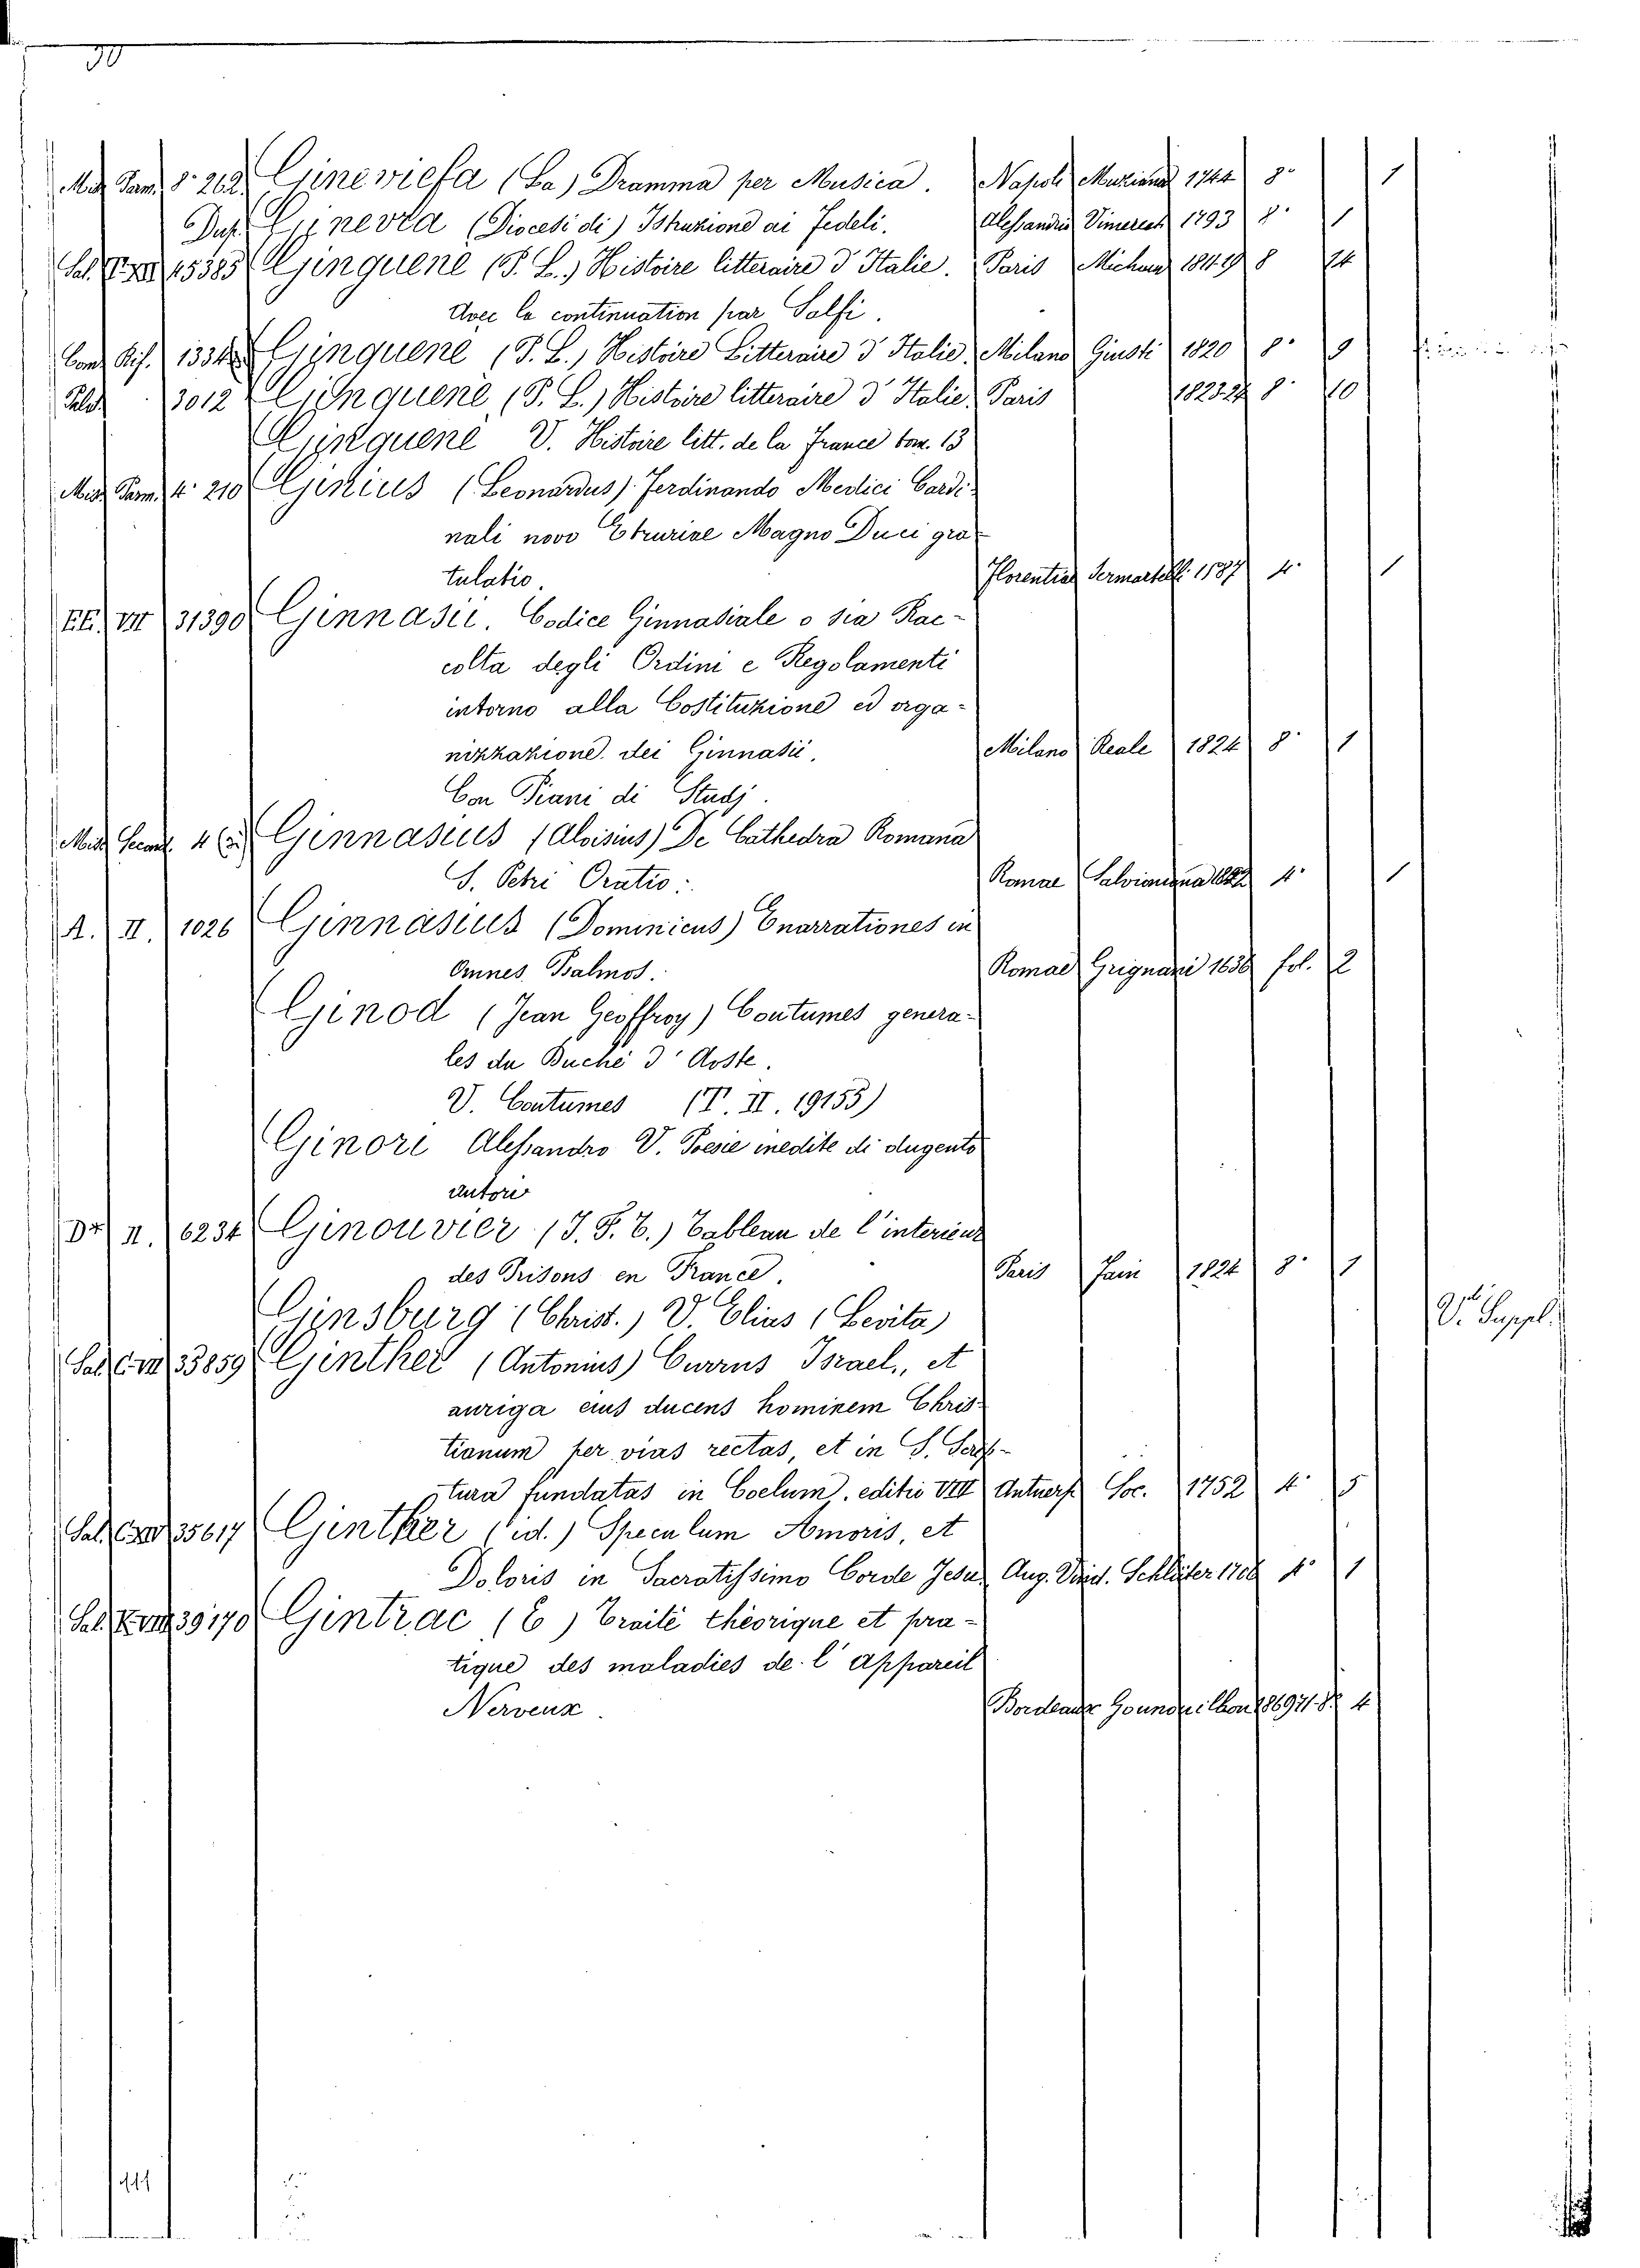 30
Misc. Parm. 8° 262 Gineviefa (La) Dramma per Musica. Napoli Muziana 1744 8° 1
Dup. Ginevra (Diocesi di) Istruzione ai Fedeli. Alessandria Vimercati 1793 8° 1
Sal. 15385 Ginguene (P. L.) Histoire litteraire d'Italie. Paris Michaud 1811.19 8 14
Avec la continuation par Salfi.
Cons. Rif. 1334 Ginguene (P. L.) Histoire Litteraire d'Italie. Milano Giusti 1820 8° 9
Palat. 3012 Ginguene (P. L.) Histoire litteraire d'Italie. Paris 1823.24 8° 10
Ginguene V. Histoire litt. de la France tom. 13
Misc. Parm. 4° 210 Ginius (Leonardus) Ferdinando Medici Cardi-
nali novo Etruriae Magno Duci gra-
tulatio. Florentiae Sermartelli 1587 4° 1
EE. VII 31390 Ginnasii. Codice Ginnasiale o sia Rac-
colta degli Ordini e Regolamenti
intorno alla Costituzione ed orga-
nizzazione dei Ginnasii. Milano Reale 1824 8° 1
Con Piani di Studj.
Misc. Ginnasius (Aloisius) De Cathedra Romana
S. Petri Oratio. Romae Salvioniana 4° 1
A. II. 1026 Ginnasius (Dominicus) Enarrationes in
Omnes Psalmos. Romae Grignani 1636 fol. 2
Ginod (Jean Geoffroy) Coutumes genera-
les du Duché d'Aoste.
V. Coutumes (T. II. 19155)
Ginori Alessandro V. Poesie inedite di dugento
autori
II. 6234 Ginouvier (J. F. T.) Tableau de l'interieur
des Prisons en France. Paris 1824 8° 1
Ginsburg (Christ.) V. Elias (Levita) V. Suppl.
Sal. 33859 Ginther (Antonius) Currus Israel, et
auriga eius ducens hominem Chris-
tianum per vias rectas, et in S. Scrip-
tura fundatas in Coelum. editio VIII Antuerp. Soc. 1752 4° 5
Sal. 35617 Ginther (id.) Speculum Amoris, et
Doloris in Sacratissimo Corde Jesu. Aug. Vind. Schlüter 1706 4° 1
Sal. 39170 Gintrac (E) Traité théorique et pra-
tique des maladies de l'appareil
Nerveux. Bordeaux Gounouilhou 1869.71 8° 4